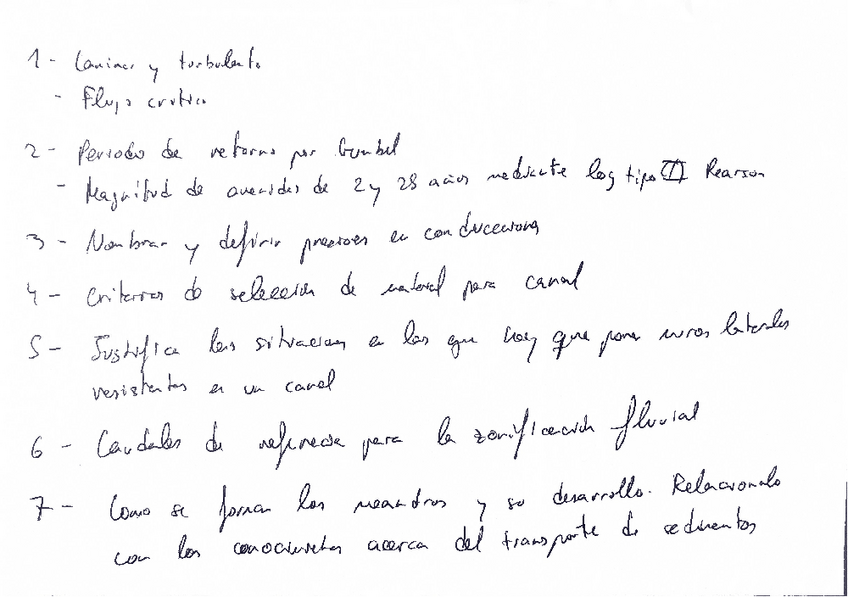 1- Laminar y turbulento
- Flujo critico
2- Periodo de retorno por Gumbel
- Magnitud de avenidas de 2 y 25 años mediante log tipo III Pearson
3- Nombrar y definir presiones en conducciones
4- Criterios de selección de material para canal
5- Justifica las situaciones en las que hay que poner muros laterales
resistentes en un canal
6- Caudales de referencia para la zonificación fluvial
7- Como se forman los meandros y su desarrollo. Relacionalo
con los conocimientos acerca del transporte de sedimentos